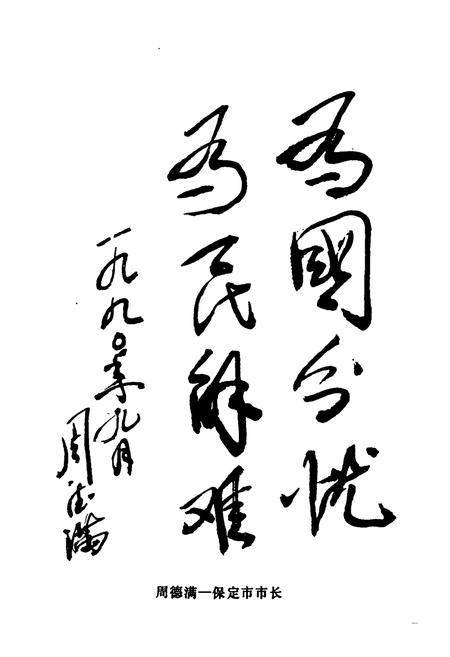 为國分忧
为民解难
一九九〇年九月
周德满
周德满—保定市市长